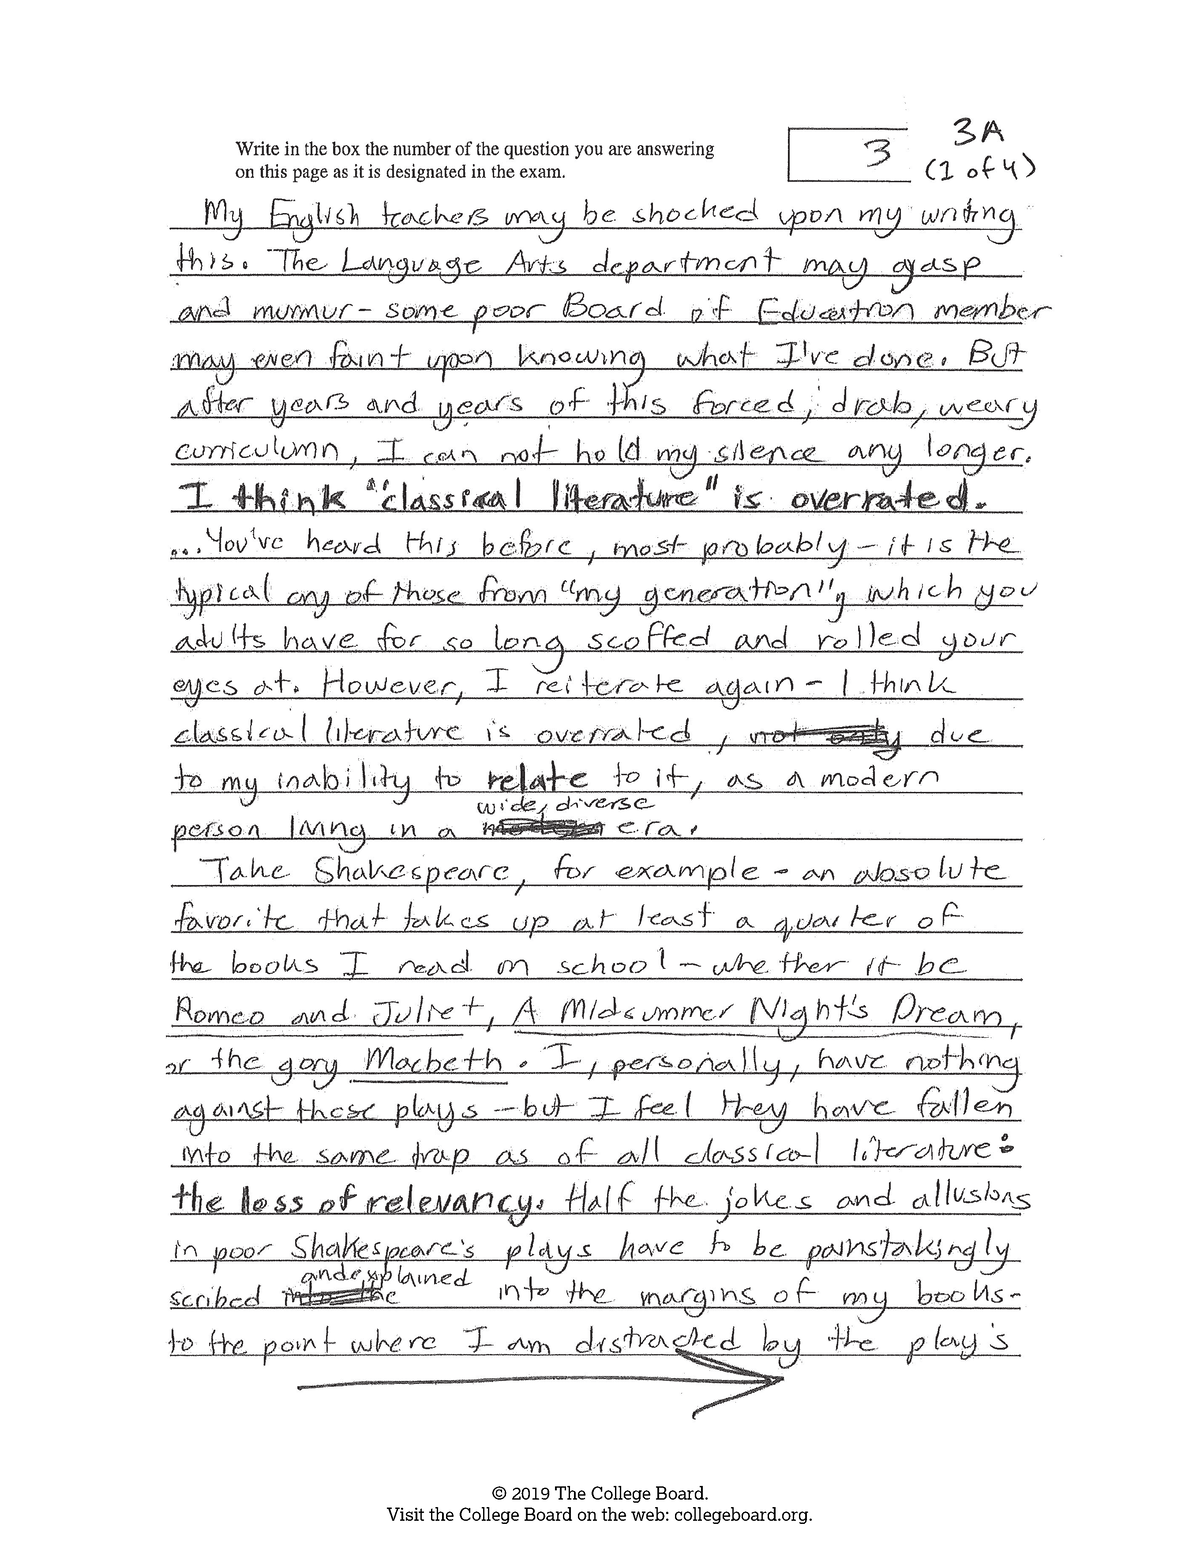 Write in the box the number of the question you are answering
on this page as it is designated in the exam.
3
3A
(1 of 4)
My English teachers may be shocked upon my writing
this. The Language Arts department may gasp
and murmur - some poor Board of Education member
may even faint upon knowing what I've done. But
after years and years of this forced, drab, weary
curriculumn, I can not hold my silence any longer.
I think "classical literature" is overrated.
...You've heard this before, most probably - it is the
typical cry of those from "my generation", which you
adults have for so long scoffed and rolled your
eyes at. However, I reiterate again - I think
classical literature is overrated, not only due
to my inability to relate to it, as a modern
wide, diverse
person living in a era.
Take Shakespeare, for example - an absolute
favorite that takes up at least a quarter of
the books I read in school - whether it be
Romeo and Juliet, A Midsummer Night's Dream,
or the gory Macbeth. I, personally, have nothing
against these plays - but I feel they have fallen
into the same trap as of all classical literature:
the loss of relevancy. Half the jokes and allusions
in poor Shakespeare's plays have to be painstakingly
and explained
scribed into the into the margins of my books-
to the point where I am distracted by the play's
© 2019 The College Board.
Visit the College Board on the web: collegeboard.org.